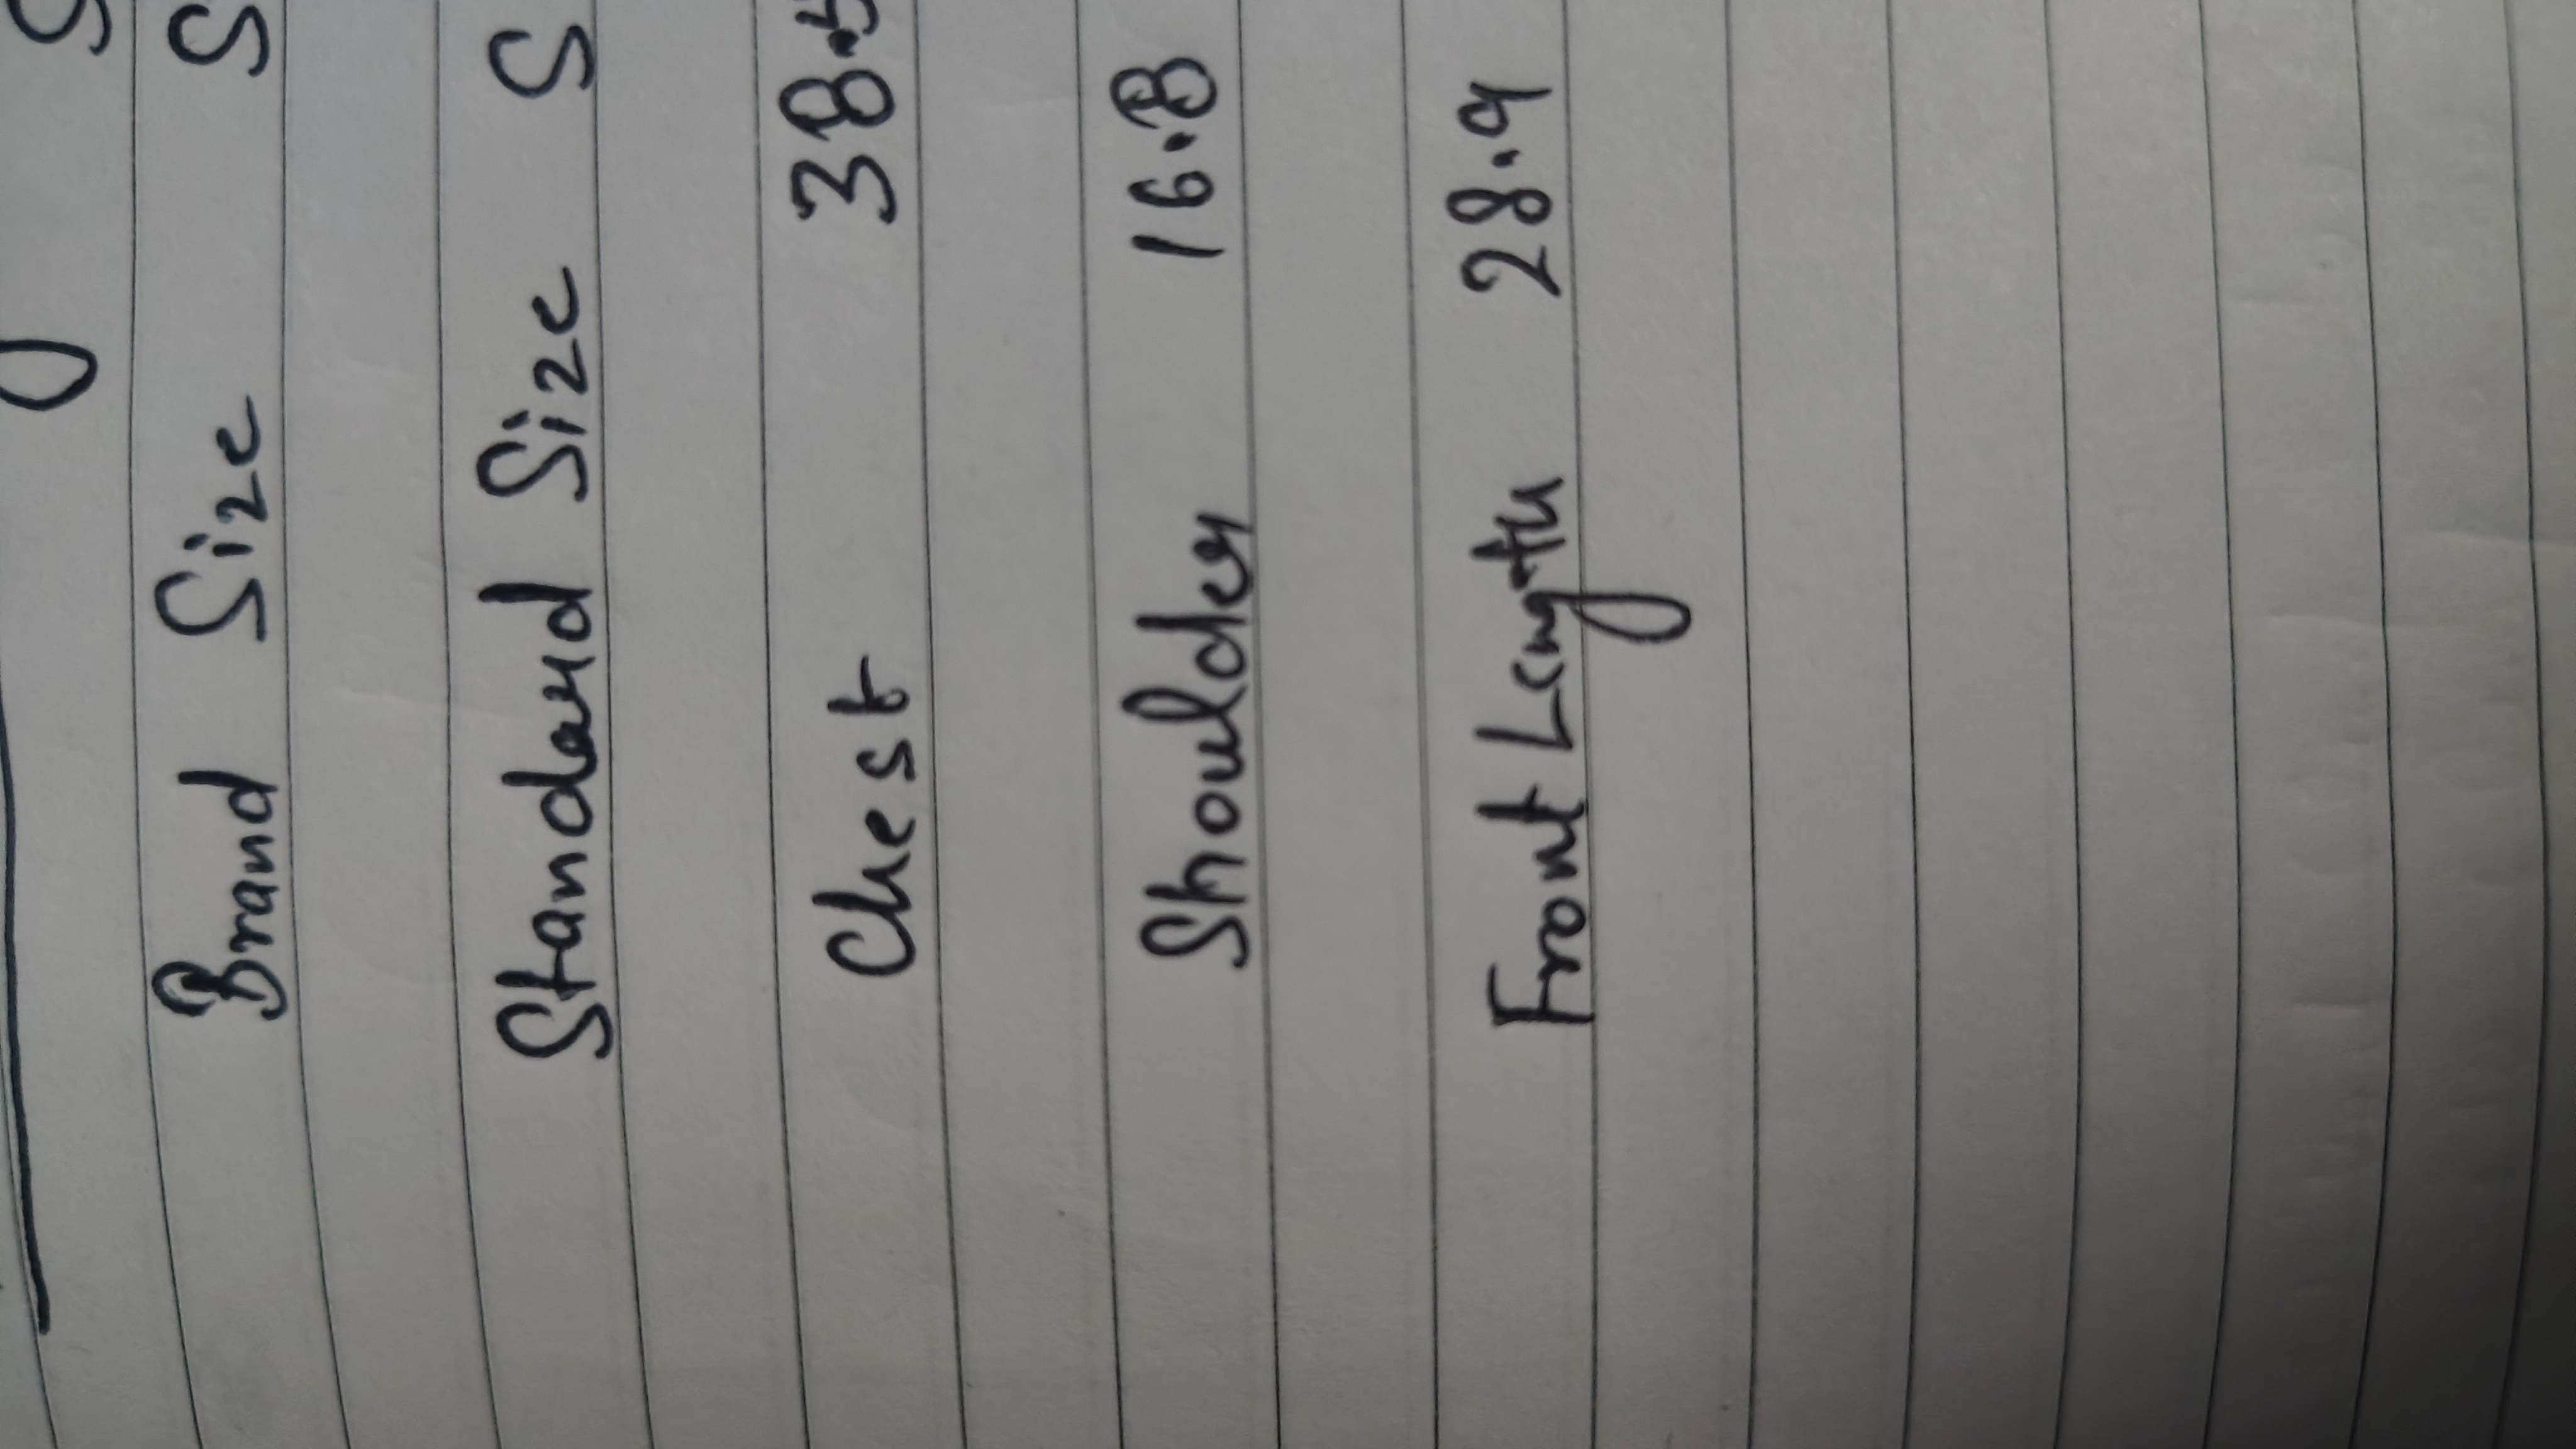 Brand Size S
Standard Size S
Chest 38.5
Shoulder 16.8
Front Length 28.9